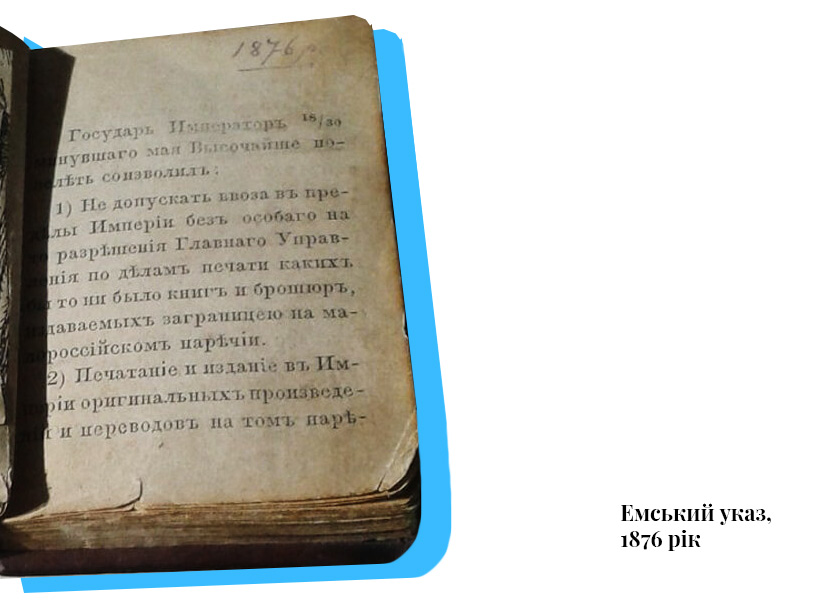 1876 г.
Государь Императоръ 18/30
минувшаго мая Высочайше по-
велѣть соизволилъ:
1) Не допускать ввоза въ пре-
дѣлы Имперіи безъ особаго на
то разрѣшенія Главнаго Управ-
ленія по дѣламъ печати какихъ
бы то ни было книгъ и брошюръ,
издаваемыхъ заграницею на ма-
лороссійскомъ нарѣчіи.
2) Печатаніе и изданіе въ Им-
періи оригинальныхъ произведе-
ній и переводовъ на томъ нарѣ-
Емський указ,
1876 рік